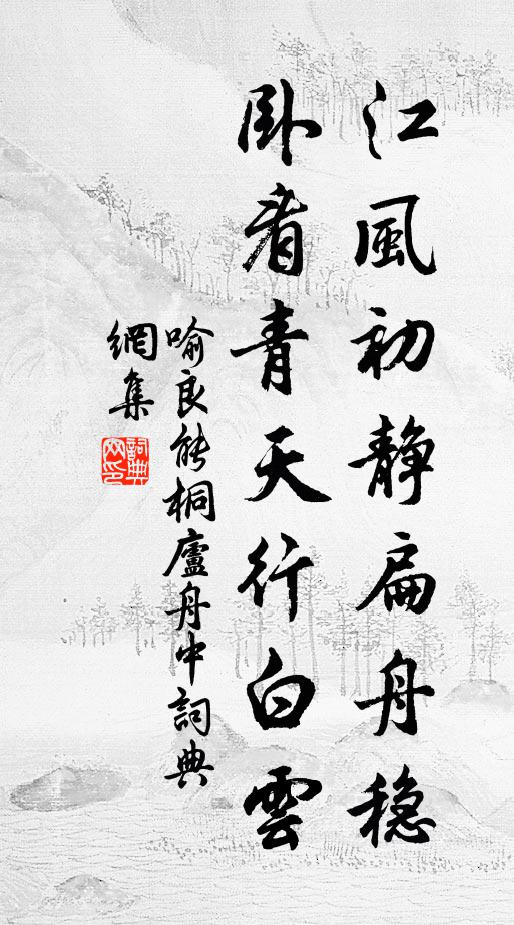 江風初静扁舟穏
卧看青天行白雲
喻良能桐廬舟中詞典
網集
詞典網印